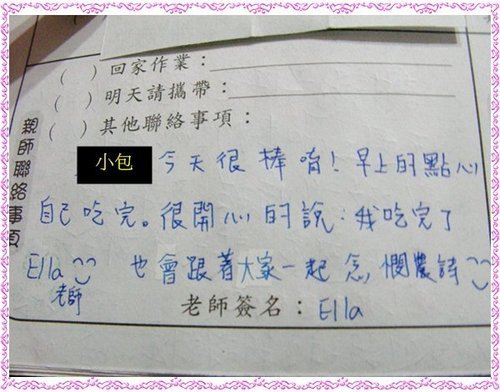 ( )回家作業：
( )明天請攜帶：
( )其他聯絡事項：
親師聯絡事項
小包 今天很棒唷！早上的點心
自己吃完。很開心的說：我吃完了
Ella 也會跟著大家一起念，憫農詩
老師
老師簽名：Ella